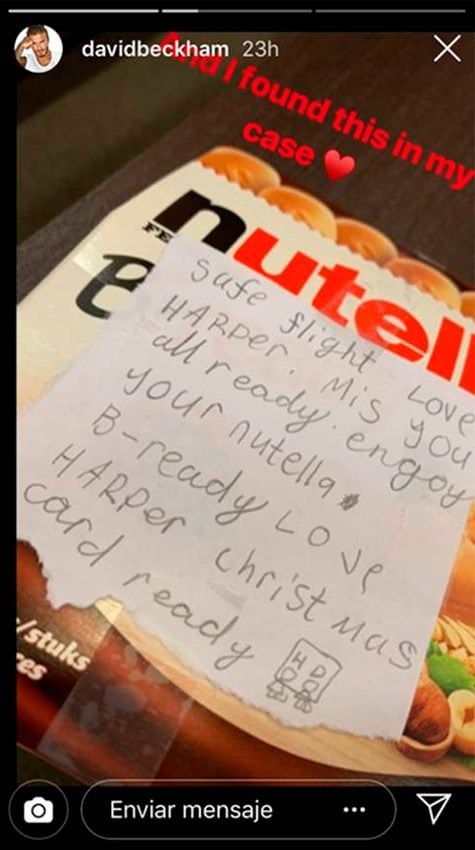 davidbeckham 23h
And I found this in my
case
nutell
FE
B
safe flight Love
HARPer. Mis you
all ready. engoy
your nutella
B-ready Love
HARPer christmas
card ready
H D
/stuks
es
Enviar mensaje